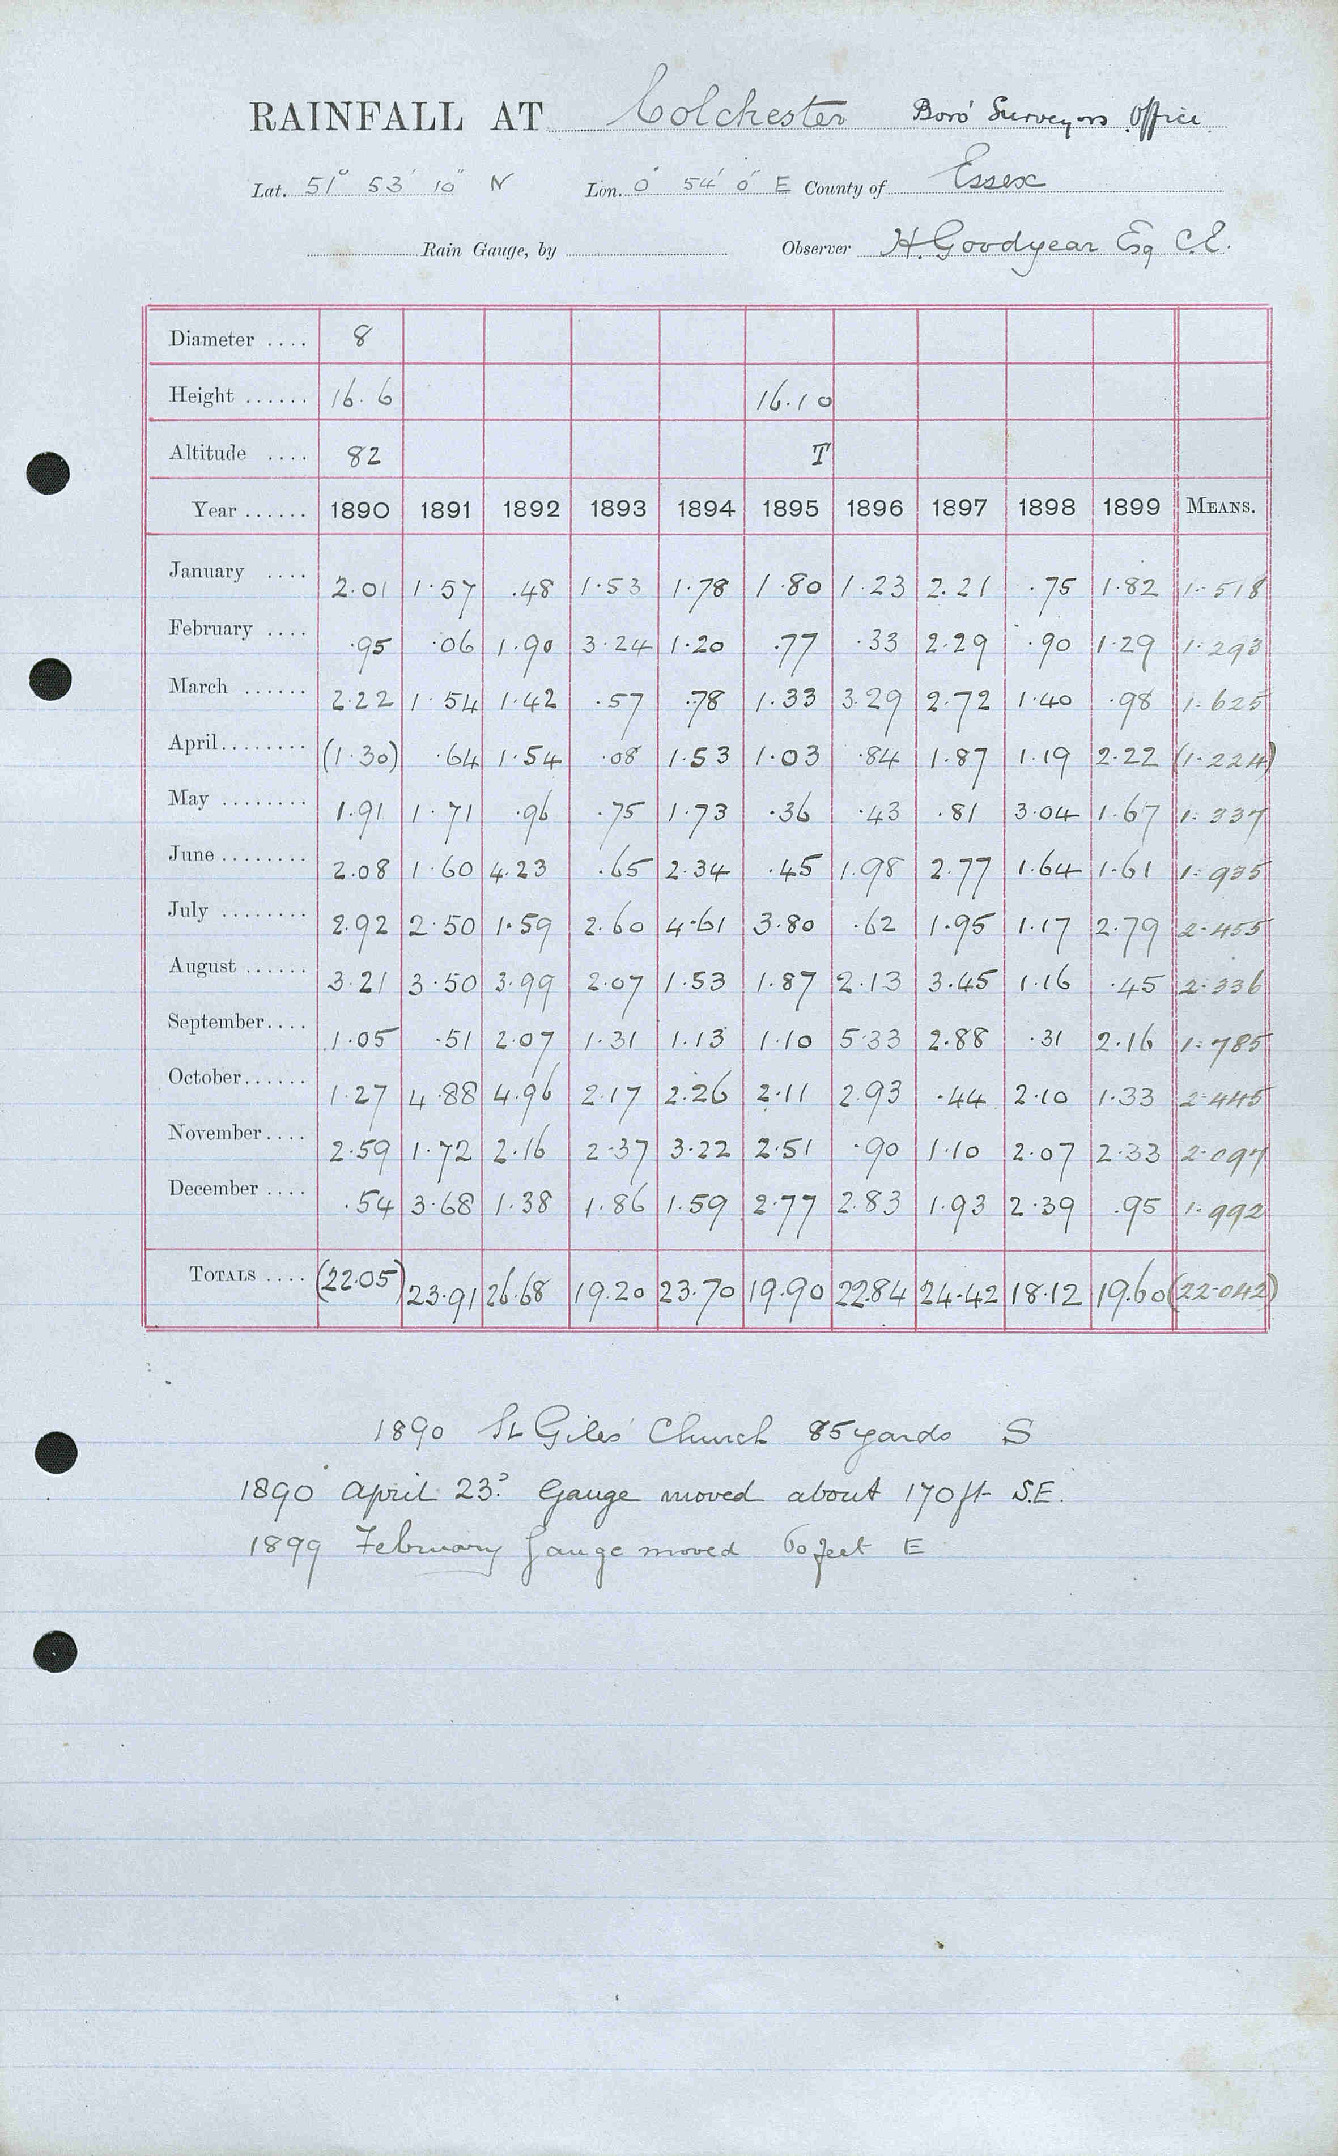 RAINFALL AT Colchester Boro' Surveyors Office
Lat. 51° 53' 10" N Lon. 0° 54' 0" E County of Essex
Rain Gauge, by Observer H. Goodyear Esq C.E.
Diameter .... 8
Height ...... 16.6 16.10
Altitude .... 82 T
Year ...... 1890 1891 1892 1893 1894 1895 1896 1897 1898 1899 MEANS.
January .... 2.01 1.57 .48 1.53 1.78 1.80 1.23 2.21 .75 1.82 1.518
February .... .95 .06 1.90 3.24 1.20 .77 .33 2.29 .90 1.29 1.293
March ...... 2.22 1.54 1.42 .57 .78 1.33 3.29 2.72 1.40 .98 1.625
April........ (1.30) .64 1.54 .08 1.53 1.03 .84 1.87 1.19 2.22 (1.224)
May ........ 1.91 1.71 .96 .75 1.73 .36 .43 .81 3.04 1.67 1.337
June ........ 2.08 1.60 4.23 .65 2.34 .45 1.98 2.77 1.64 1.61 1.935
July ........ 2.92 2.50 1.59 2.60 4.61 3.80 .62 1.95 1.17 2.79 2.455
August ...... 3.21 3.50 3.99 2.07 1.53 1.87 2.13 3.45 1.16 .45 2.336
September.... 1.05 .51 2.07 1.31 1.13 1.10 5.33 2.88 .31 2.16 1.785
October...... 1.27 4.88 4.96 2.17 2.26 2.11 2.93 .44 2.10 1.33 2.445
November.... 2.59 1.72 2.16 2.37 3.22 2.51 .90 1.10 2.07 2.33 2.097
December .... .54 3.68 1.38 1.86 1.59 2.77 2.83 1.93 2.39 .95 1.992
TOTALS .... (22.05) 23.91 26.68 19.20 23.70 19.90 22.84 24.42 18.12 19.60 (22.042)
1890 St Giles' Church 85 yards S
1890 April 23? Gauge moved about 170 ft S.E.
1899 February gauge moved 60 feet E